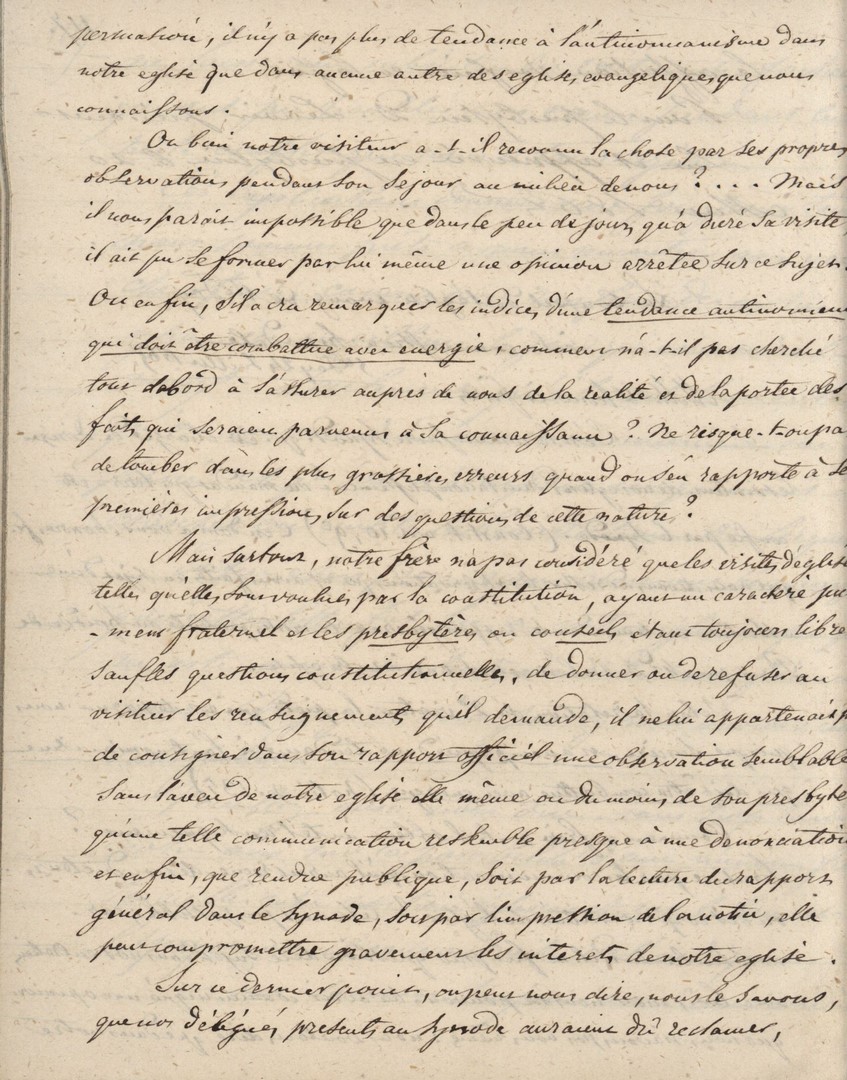 persuasion, il n'y a pas plus de tendance à l'antinomianisme dans
notre eglise que dans aucune autre des eglises evangeliques que nous
connaissons.
Ou bien notre visiteur a-t-il reconnu la chose par ses propres
observations pendant son sejour au milieu de nous ? . . . Mais
il nous parait impossible que dans le peu de jours qu'a duré sa visite,
il ait pu se former par lui même une opinion arrêtée sur ce sujet.
Ou enfin, s'il a cru remarquer les indices d'une tendance antinomienne
qui doit être combattue avec energie, comment n'a-t-il pas cherché
tout dabord à s'assurer auprès de nous de la realité et de la portée des
faits qui seraient parvenus à sa connaissance ? Ne risque-t-on pa
de tomber dans les plus grossières erreurs quand on s'en rapporte à se
premières impressions sur des questions de cette nature ?
Mais surtout, notre frère n'a pas considéré que les visites d'eglise
telles qu'elles sont voulues par la constitution, ayant un caractère pu
-ment fraternel et les presbytères ou conseils étant toujours libre
sauf les questions constitutionnelles, de donner ou de refuser au
visiteur les renseignements qu'il demande, il ne lui appartenait p
de consigner dans son rapport officiel une observation semblable
sans l'aveu de notre eglise elle même ou du moins de son presbytè
qu'une telle communication ressemble presque à une denonciation
et enfin, que rendue publique, soit par la lecture du rapport
général dans le synode, soit par l'impression de la notice, elle
peut compromettre gravement les interets de notre eglise.
Sur ce dernier point, on peut nous dire, nous le savons,
que nos délégués presents au synode auraient dû reclamer,